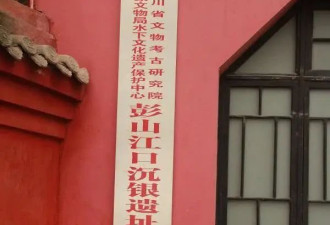 川省文物考古研究院
文物局水下文化遗产保护中心
彭山江口沉银遗址